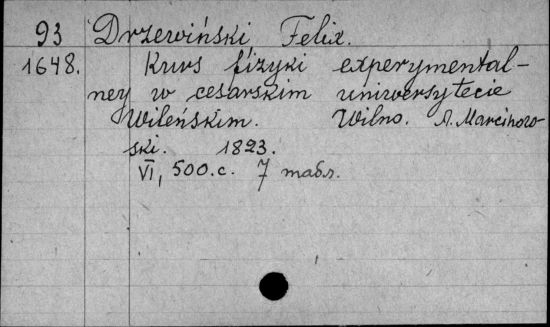 93 Drzewiński Felix.
1648. Kurs fizyki experymental-
ney w cesarskim uniwersytecie
Wileńskim. Wilno. A. Marcinow-
ski. 1823.
VI, 500.c. 7 табл.